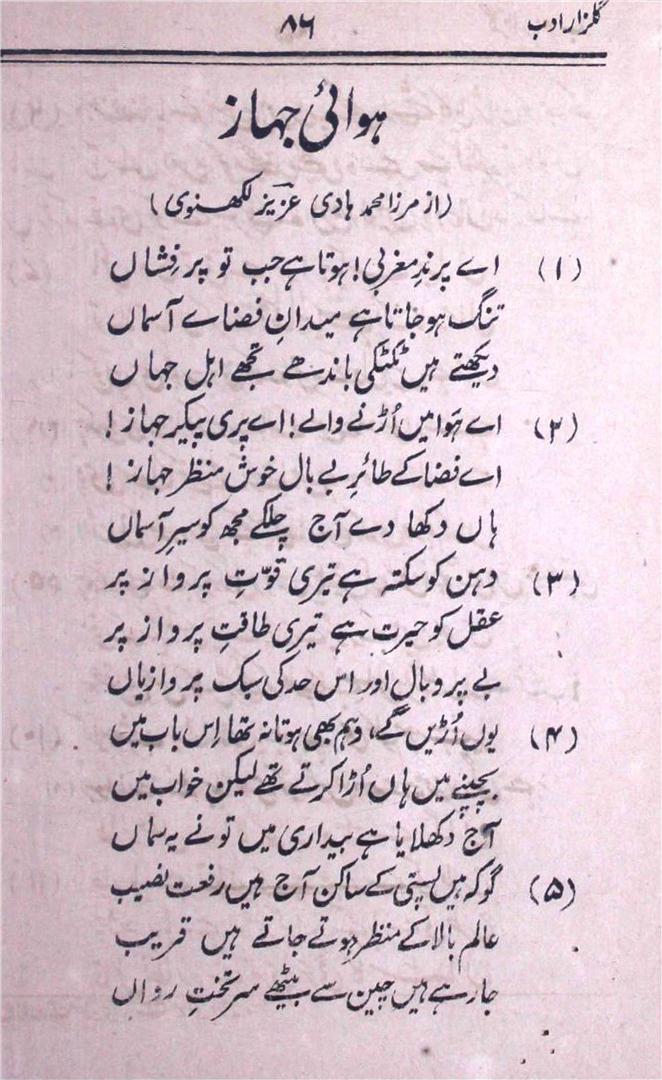 گلزار ادب ۸۶
ہوائی جہاز
(از مرزا محمد ہادی عزیز لکھنوی)
(۱) اے پرندِ مغربی! ہوتا ہے جب تو پر فِشاں
تنگ ہو جاتا ہے میدانِ فضاے آسماں
دیکھتے ہیں ٹکٹکی باندھے تجھے اہل جہاں
(۲) اے ہَوا میں اُڑنے والے! اے پری پیکر جہاز!
اے فضا کے طائرِ بے بال خوش منظر جہاز!
ہاں دکھا دے آج چلکے مجھ کو سیرِ آسماں
(۳) ذہن کو سکتہ ہے تیری قوّتِ پرواز پر
عقل کو حیرت ہے تیری طاقتِ پرواز پر
بے پر و بال اور اس حد کی سبک پروازیاں
(۴) یوں اُڑیں گے، وہم بھی ہوتا نہ تھا اِس باب میں
بچپنے میں ہاں اُڑا کرتے تھے لیکن خواب میں
آج دکھلایا ہے بیداری میں تو نے یہ سماں
(۵) گو کہ ہیں پستی کے ساکن آج ہیں رفعت نصیب
عالم بالا کے منظر ہوتے جاتے ہیں قریب
جا رہے ہیں چین سے بیٹھے سرِ تختِ رواں